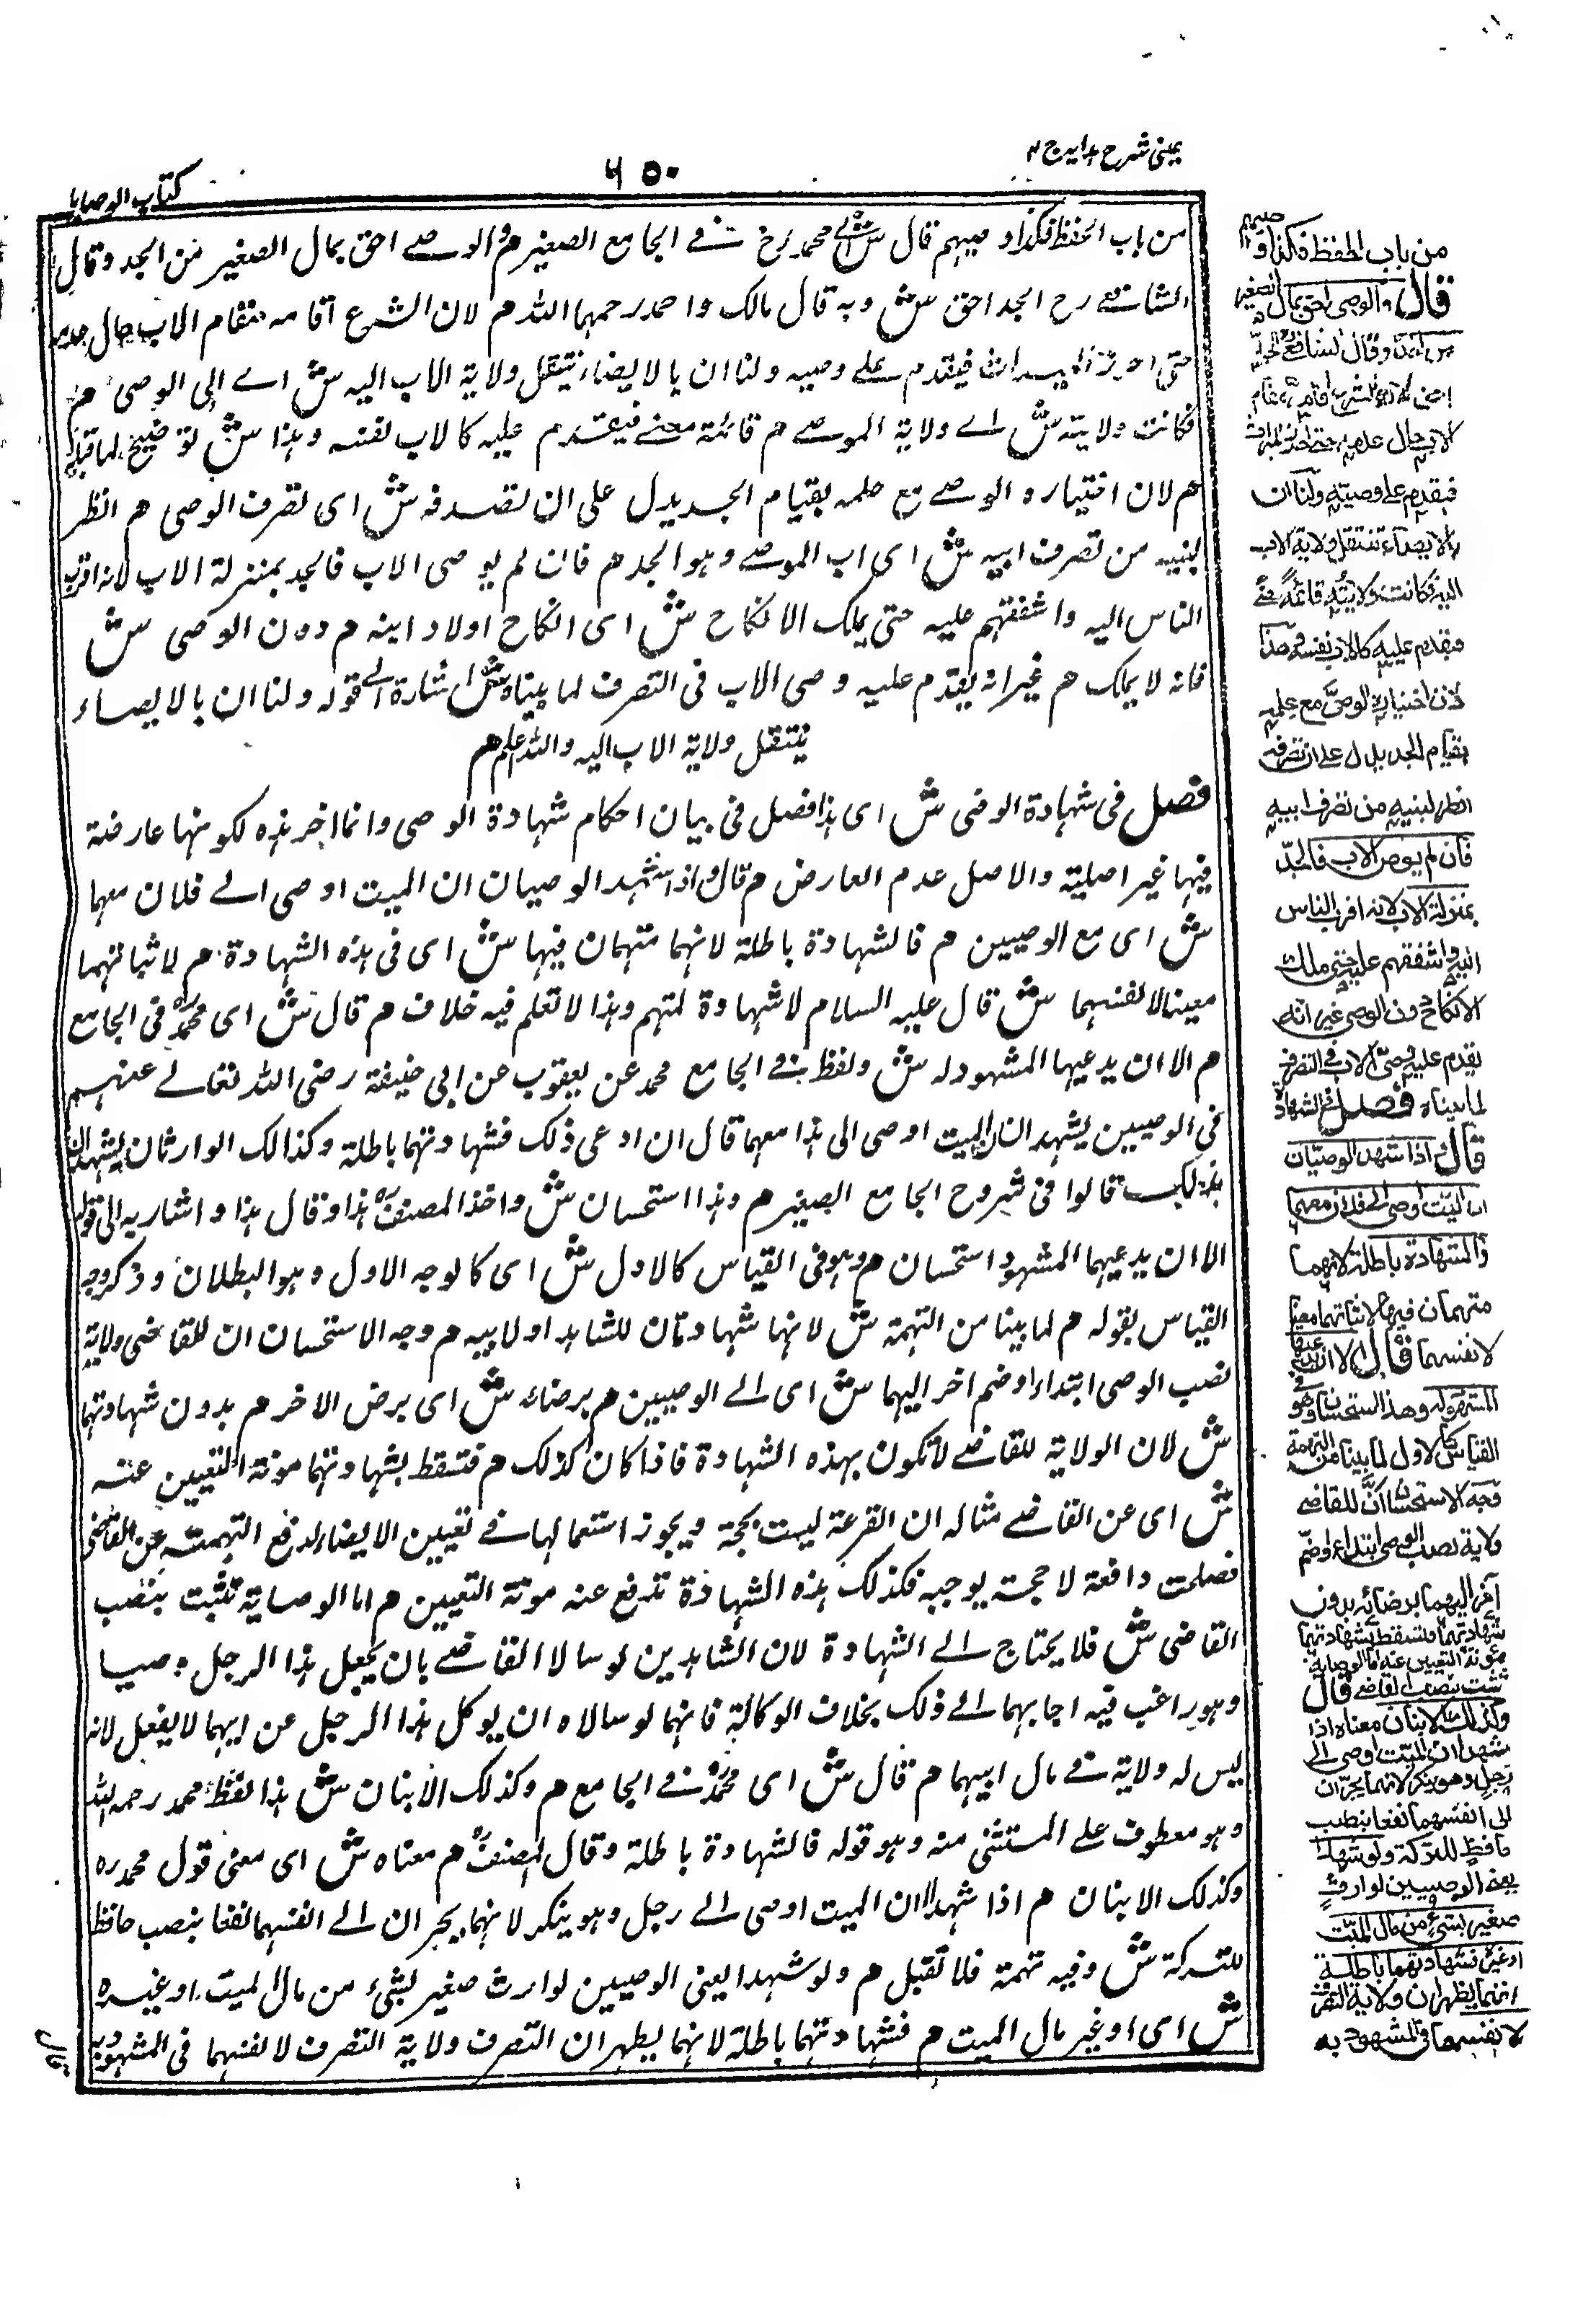 عینی شرح ہدایہ ج ۴
۶۵۰
کتاب الوصایا
من باب الحفظ فكذا وصيهم قال ش اى محمد رح فى الجامع الصغير م والوصى احق بمال الصغير من الجد وقال
الشافعى رح الجد احق ش وبه قال مالك واحمد رحمهما الله م لان الشرع اقامه مقام الاب حال عدمه
حتى احرز الميراث فيقدم على وصيه ولنا ان بالايصاء تنتقل ولاية الاب اليه ش اى الى الوصى م
فكانت ولايته ش اى ولاية الموصى م قائمة معنى فيقدم عليه كالاب نفسه وهذا ش توضيح لما قبله
م لان اختياره الوصى مع علمه بقيام الجد يدل على ان تصرفه ش اى تصرف الوصى م انظر
لبنيه من تصرف ابيه ش اى اب الموصى وهو الجد م فان لم يوصى الاب فالجد بمنزلة الاب لانه اقرب
الناس اليه واشفقهم عليه حتى يملك الانكاح ش اى انكاح اولاد ابنه م دون الوصى ش
فانه لا يملك م غير انه يقدم عليه وصى الاب فى التصرف لما بيناه ش اشارة الى قوله ولنا ان بالايصاء
تنتقل ولاية الاب اليه والله اعلم م
فصل فى شهادة الوصى ش اى هذا فصل فى بيان احكام شهادة الوصى وانما اخر هذه لكونها عارضة
فيها غير اصلية والاصل عدم العارض م قال واذا شهد الوصيان ان الميت اوصى الى فلان معهما
ش اى مع الوصيين م فالشهادة باطلة لانهما متهمان فيها ش اى فى هذه الشهادة م لاثباتهما
معينا لانفسهما ش قال عليه السلام لا شهادة لمتهم وهذا لا نعلم فيه خلاف م قال ش اى محمد رح فى الجامع
م الا ان يدعيها المشهود له ش ولفظ فى الجامع محمد عن يعقوب عن ابى حنيفة رضى الله تعالى عنهم
فى الوصيين يشهد ان الميت اوصى الى هذا معهما قال ان ادعى ذلك فشهادتهما باطلة وكذالك الوارثان يشهدان
بذلك قالوا فى شروح الجامع الصغير م وهذا استحسان ش واخذ المصنف رح هذا وقال هذا واشار به الى قوله
الا ان يدعيهما المشهود استحسان م وهو فى القياس كالاول ش اى كالوجه الاول وهو البطلان وذكر وجه
القياس بقوله م لما بينا من التهمة ش لانها شهادتان للشاهد او لابيه م وجه الاستحسان ان للقاضى ولاية
نصب الوصى ابتداء او ضم اخر اليهما ش اى الى الوصيين م برضائه ش اى برض الاخر م بدون شهادتهما
ش لان الولاية للقاضى لا تكون بهذه الشهادة فاذا كان كذلك م فتسقط بشهادتهما مونة التعيين عنه
ش اى عن القاضى مثاله ان القرعة ليست بحجة ويجوز استعمالها فى تعيين الايصاء لدفع التهمة عن القاضى
فصلحت دافعة لا حجة يوجبه فكذلك هذه الشهادة تدفع عنه مونة التعيين م اما الوصاية تثبت بنصب
القاضى ش فلا يحتاج الى الشهادة لان الشاهدين لو سالا القاضى بان يجعل هذا الرجل وصيا
وهو راغب فيه اجابهما الى ذلك بخلاف الوكالة فانهما لو سالاه ان يوكل هذا الرجل عن ابيهما لا يفعل لانه
ليس له ولاية فى مال ابيهما م قال ش اى محمد رح فى الجامع م وكذلك الابنان ش هذا لفظ محمد رحمه الله
وهو معطوف على المستثنى منه وهو قوله فالشهادة باطلة وقال المصنف رح م معناه ش اى معنى قول محمد رح
وكذلك الابنان م اذا شهدا ان الميت اوصى الى رجل وهو ينكر لانهما يجران الى انفسهما نفعا بنصب حافظ
للتركة ش وفيه تهمة فلا تقبل م ولو شهدا يعنى الوصيين لوارث صغير بشئ من مال الميت او غيره
ش اى او غير مال الميت م فشهادتهما باطلة لانهما يظهران التصرف ولاية التصرف لانفسهما فى المشهود به
قال
من باب الحفظ فكذا وصيهم
قال والوصى احق بمال الصغير
من الجد وقال الشافعى الجد
احق لان الشرع اقامه مقام
الاب حال عدمه حتى احرز الميراث
فيقدم على وصيه ولنا ان
بالايصاء تنتقل ولاية الاب
اليه فكانت ولايته قائمة معنى
فيقدم عليه كالاب نفسه وهذا
لان اختياره الوصى مع علمه
بقيام الجد يدل على ان تصرفه
انظر لبنيه من تصرف ابيه
فان لم يوص الاب فالجد
بمنزلة الاب لانه اقرب الناس
اليه واشفقهم عليه حتى ملك
الانكاح دون الوصى غير انه
يقدم عليه وصى الاب فى التصرف
لما بيناه فصل فى الشهادة
قال واذا شهد الوصيان
ان الميت اوصى الى فلان معهما
فالشهادة باطلة لانهما
متهمان فيها لاثباتهما معينا
لانفسهما قال الا ان يدعيها
المشهود له وهذا استحسان وهو فى
القياس كالاول لما بينا من التهمة
وجه الاستحسان ان للقاضى
ولاية نصب الوصى ابتداء او ضم
آخر اليهما برضائه بدون
شهادتهما فتسقط بشهادتهما
مونة التعيين عنه اما الوصاية
تثبت بنصب القاضى قال
وكذلك الابنان معناه اذا
شهدا ان الميت اوصى الى
رجل وهو ينكر لانهما يجران
الى انفسهما نفعا بنصب
حافظ للتركة ولو شهدا
يعنى الوصيين لوارث
صغير بشئ من مال الميت
او غيره فشهادتهما باطلة
لانهما يظهران ولاية التصرف
لانفسهما فى المشهود به